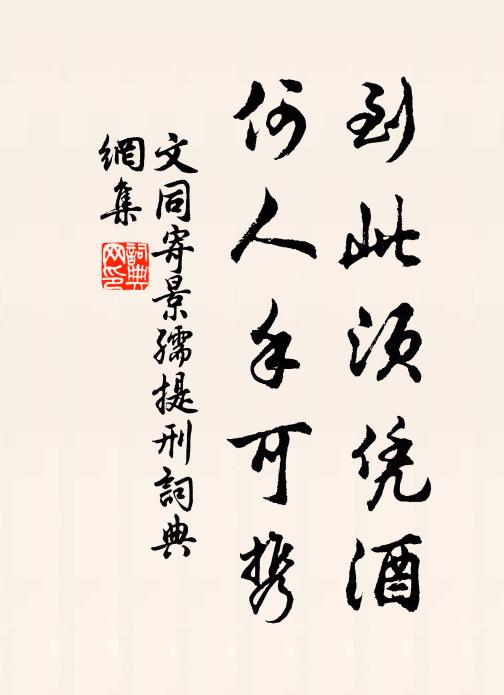 到此须凭酒
何人手可携
文同寄景孺提刑詞典
網集
詞典
网印